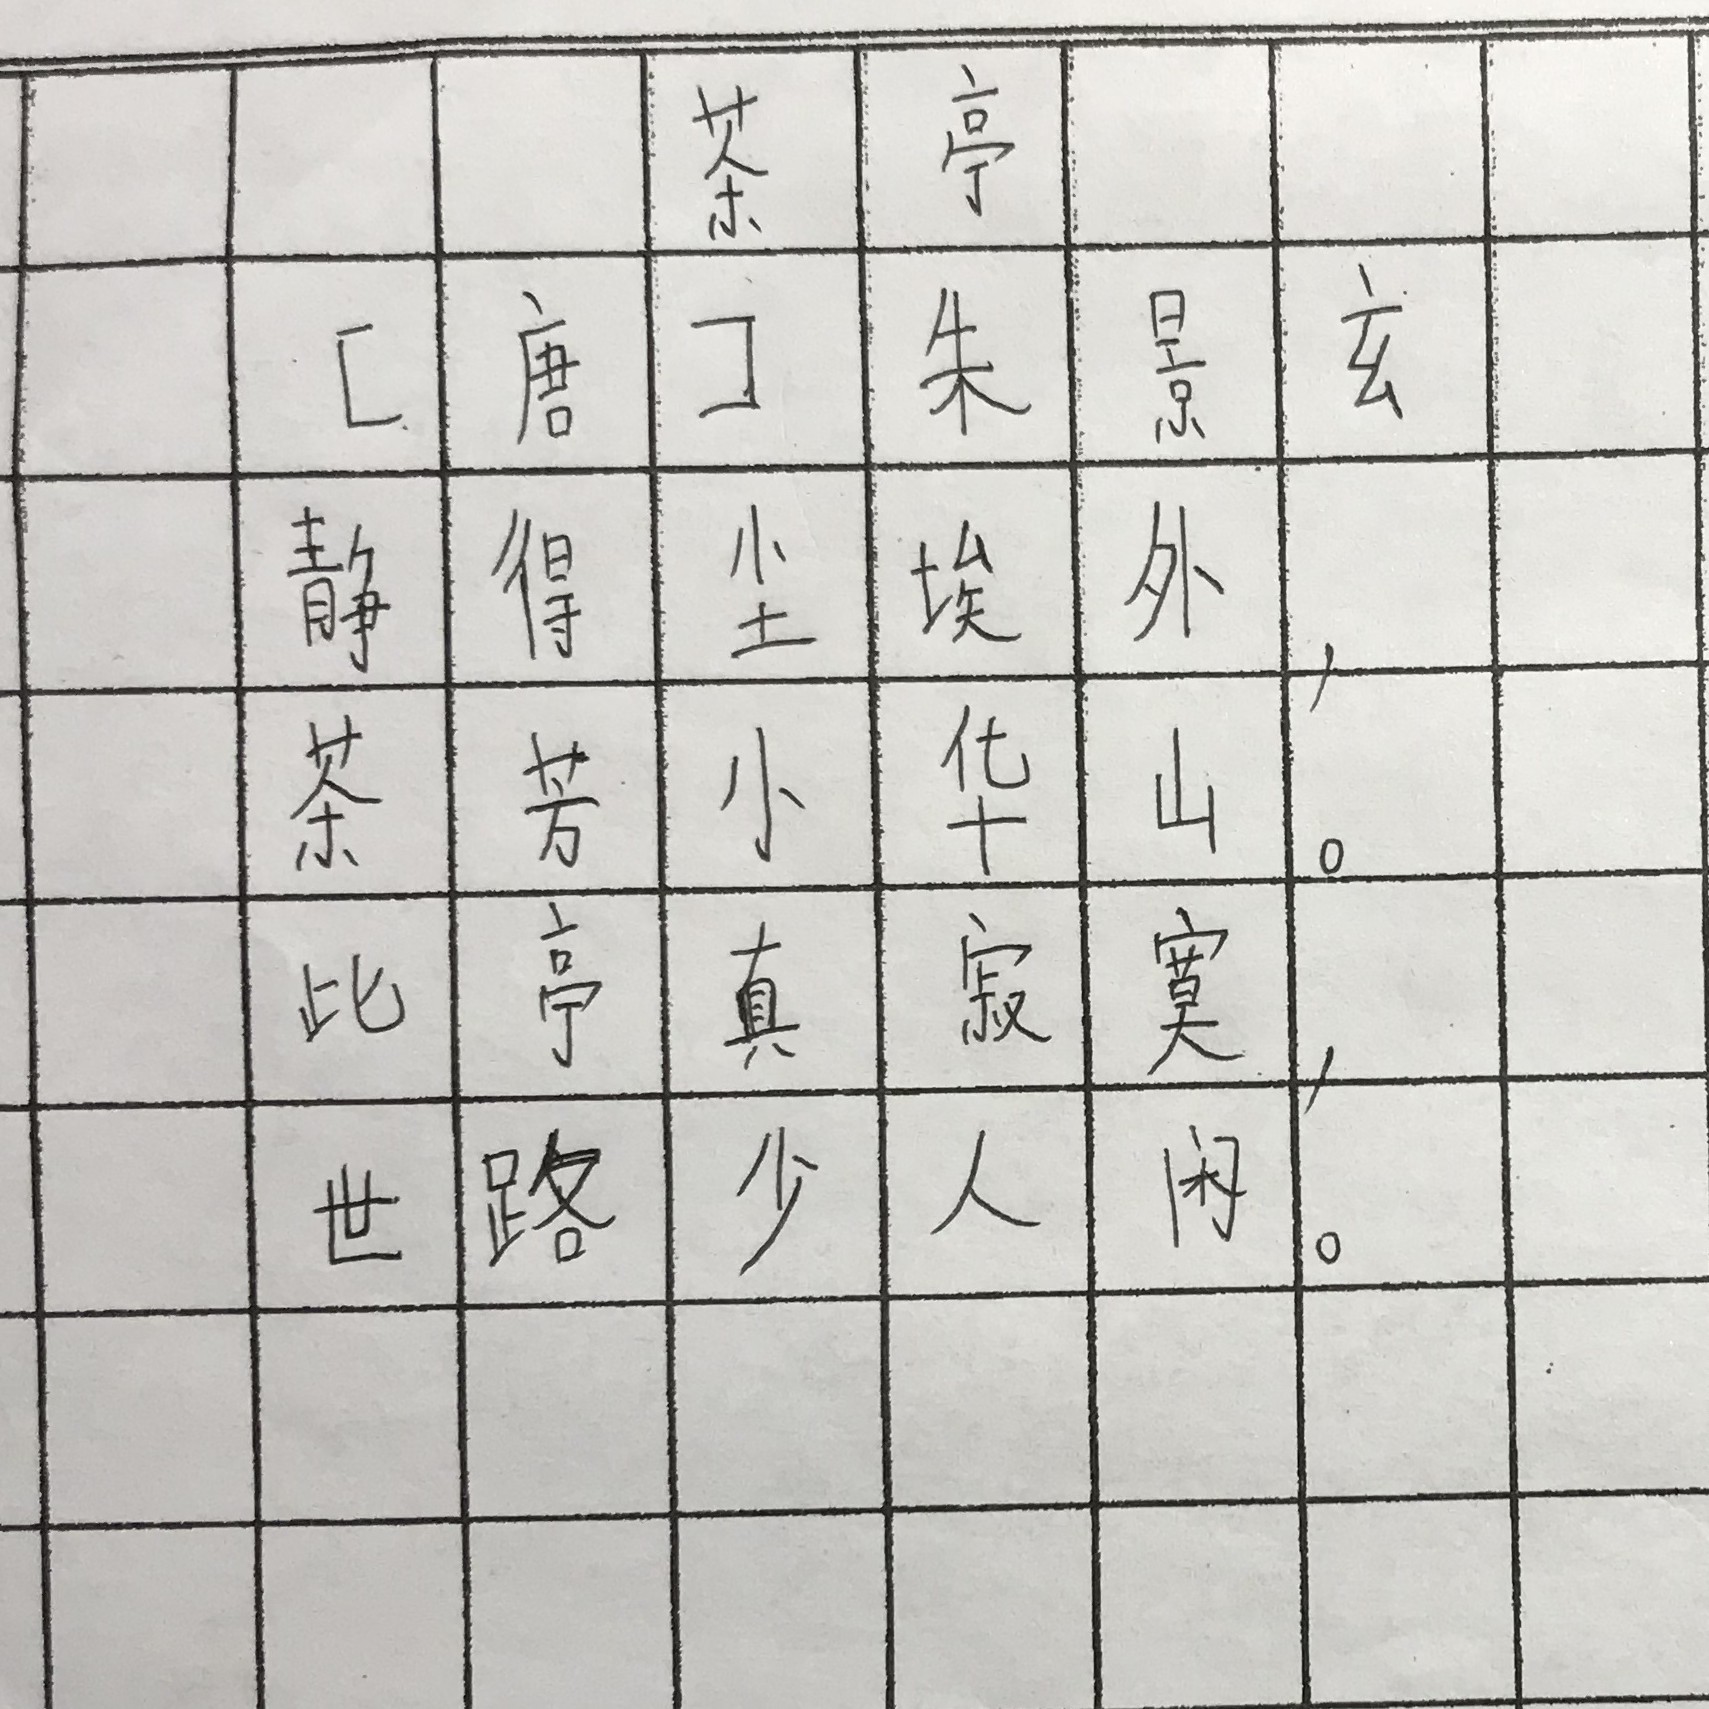 茶亭
[唐]朱景玄
静得尘埃外，
茶芳小华山。
此亭真寂寞，
世路少人闲。